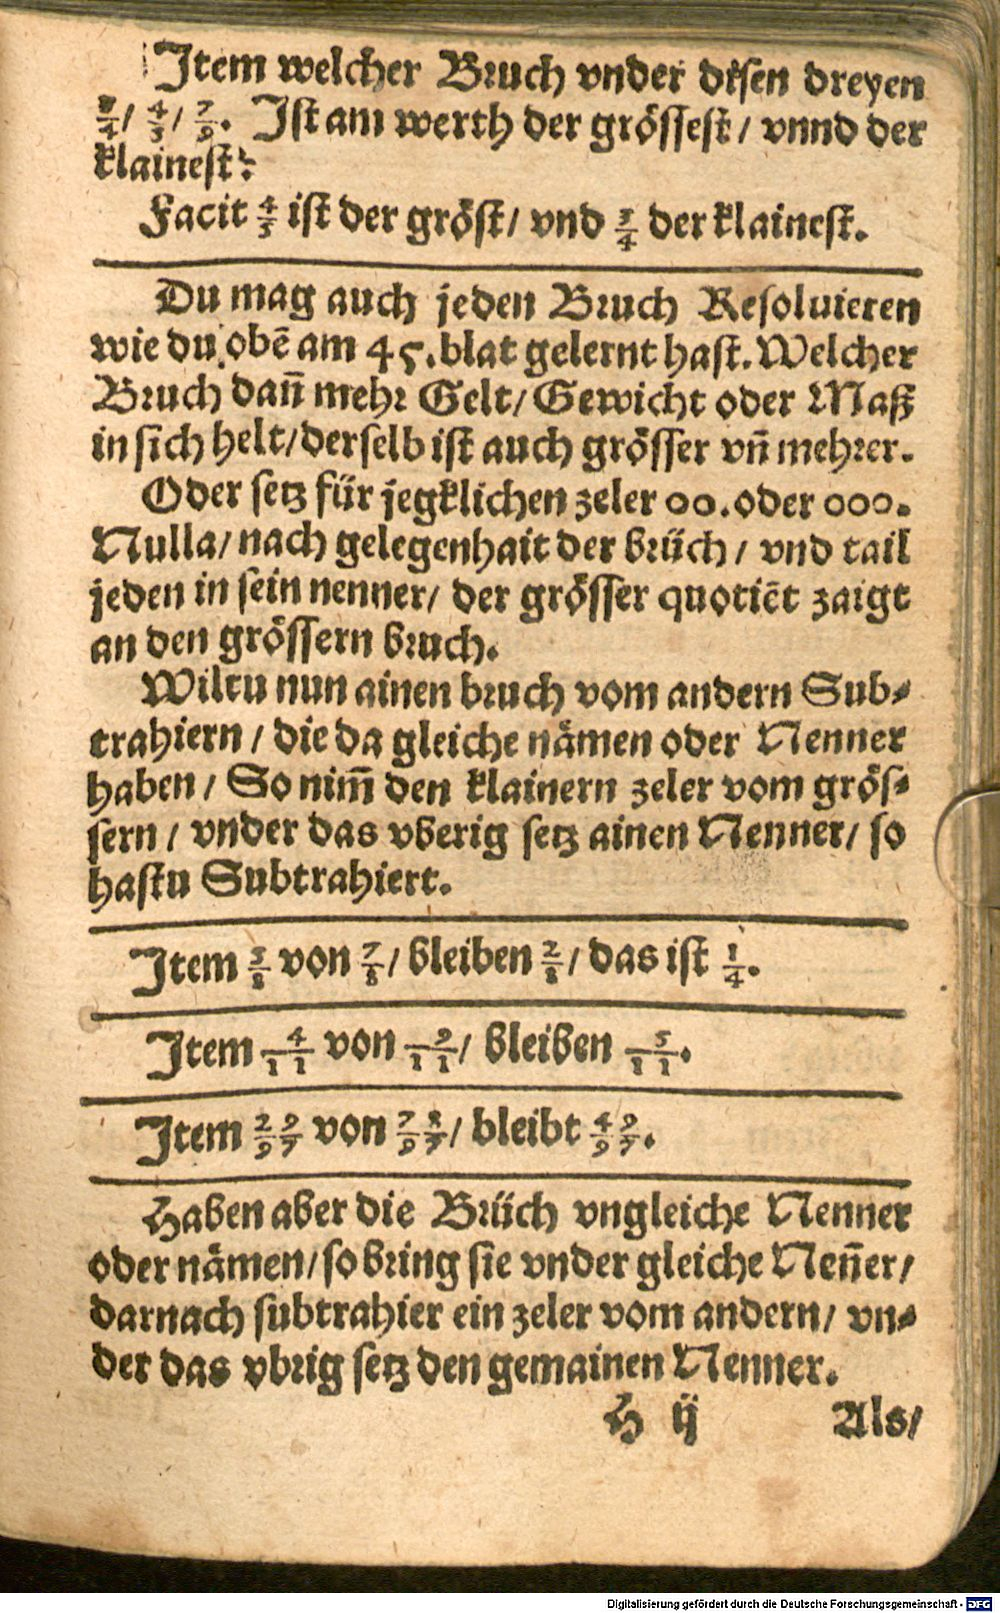 Item welcher Bruch vnder disen dreyen
3/4/ 4/5/ 7/9. Ist am werth der grössest/ vnnd der
klainest?
Facit 4/5 ist der gröst/ vnd 3/4 der klainest.
Du mag auch jeden Bruch Resoluieren
wie du obē am 45. blat gelernt hast. Welcher
Bruch dañ mehr Gelt/ Gewicht oder Maß
in sich helt/ derselb ist auch grösser vñ mehrer.
Oder setz für jegklichen zeler 00. oder 000.
Nulla/ nach gelegenhait der brüch/ vnd tail
jeden in sein nenner/ der grösser quotiēt zaigt
an den grössern bruch.
Wiltu nun ainen bruch vom andern Sub-
trahiern/ die da gleiche nämen oder Nenner
haben/ So nim̄ den klainern zeler vom grös-
sern/ vnder das vberig setz ainen Nenner/ so
hastu Subtrahiert.
Item 5/8 von 7/8/ bleiben 2/8/ das ist 1/4.
Item 4/11 von 9/11/ bleiben 5/11.
Item 29/97 von 78/97/ bleibt 49/97.
Haben aber die Brüch vngleiche Nenner
oder nämen/ so bring sie vnder gleiche Neñer/
darnach subtrahier ein zeler vom andern/ vn-
der das vbrig setz den gemainen Nenner.
H ij Als/
Digitalisierung gefördert durch die Deutsche Forschungsgemeinschaft - DFG